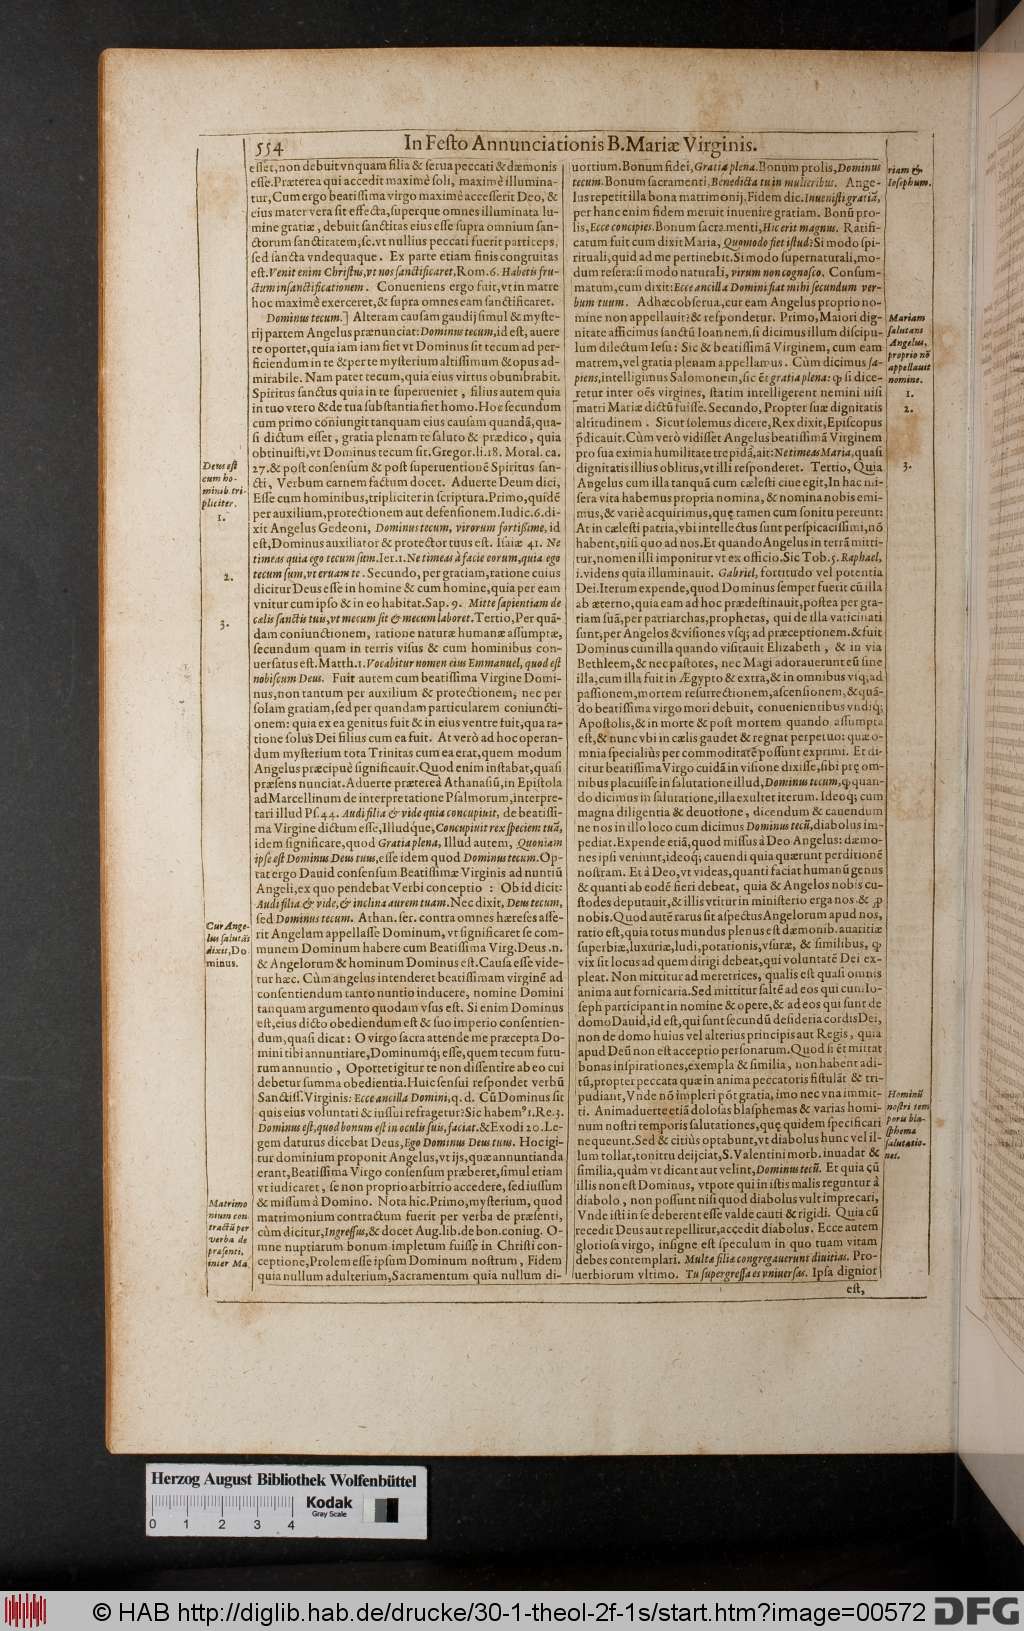 554
In Festo Annunciationis B. Mariæ Virginis.
esset, non debuit vnquam filia & serua peccati & dæmonis
esse. Præterea qui accedit maximè soli, maximè illumina-
tur, Cum ergo beatissima virgo maximè accesserit Deo, &
eius mater vera sit effecta, superque omnes illuminata lu-
mine gratiæ, debuit sanctitas eius esse supra omnium san-
ctorum sanctitatem, sc. vt nullius peccati fuerit particeps,
sed sancta vndequaque. Ex parte etiam finis congruitas
est. Venit enim Christus, vt nos sanctificaret, Rom. 6. Habetis fru-
ctum in sanctificationem. Conueniens ergo fuit, vt in matre
hoc maximè exerceret, & supra omnes eam sanctificaret.
Dominus tecum.] Alteram causam gaudij simul & myste-
rij partem Angelus prænunciat: Dominus tecum, id est, auere
te oportet, quia iam iam fiet vt Dominus sit tecum ad per-
ficiendum in te & per te mysterium altissimum & opus ad-
mirabile. Nam pater tecum, quia eius virtus obumbrabit.
Spiritus sanctus quia in te superueniet, filius autem quia
in tuo vtero & de tua substantia fiet homo. Hoc secundum
cum primo coniungit tanquam eius causam quandã, qua-
si dictum esset, gratia plenam te saluto & prædico, quia
obtinuisti, vt Dominus tecum sit. Gregor. li. 18. Moral. ca.
27. & post consensum & post superuentionẽ Spiritus san-
cti, Verbum carnem factum docet. Aduerte Deum dici,
Esse cum hominibus, tripliciter in scriptura. Primo, quidẽ
per auxilium, protectionem aut defensionem. Iudic. 6. di-
xit Angelus Gedeoni, Dominus tecum, virorum fortissime, id
est, Dominus auxiliator & protector tuus est. Isaiæ 41. Ne
timeas quia ego tecum sum. Ier. 1. Ne timeas à facie eorum, quia ego
tecum sum, vt eruam te. Secundo, per gratiam, ratione cuius
dicitur Deus esse in homine & cum homine, quia per eam
vnitur cum ipso & in eo habitat. Sap. 9. Mitte sapientiam de
cælis sanctis tuis, vt mecum sit & mecum laboret. Tertio, Per quã-
dam coniunctionem, ratione naturæ humanæ assumptæ,
secundum quam in terris visus & cum hominibus con-
uersatus est. Matth. 1. Vocabitur nomen eius Emmanuel, quod est
nobiscum Deus. Fuit autem cum beatissima Virgine Domi-
nus, non tantum per auxilium & protectionem, nec per
solam gratiam, sed per quandam particularem coniuncti-
onem: quia ex ea genitus fuit & in eius ventre fuit, qua ra-
tione solus Dei filius cum ea fuit. At verò ad hoc operan-
dum mysterium tota Trinitas cum ea erat, quem modum
Angelus præcipuè significauit. Quod enim instabat, quasi
præsens nunciat. Aduerte præterea Athanasiũ, in Epistola
ad Marcellinum de interpretatione Psalmorum, interpre-
tari illud Ps. 44. Audi filia & vide quia concupiuit, de beatissi-
ma Virgine dictum esse, Illudque, Concupiuit rex speciem tuã,
idem significare, quod Gratia plena, Illud autem, Quoniam
ipse est Dominus Deus tuus, esse idem quod Dominus tecum. Op-
tat ergo Dauid consensum Beatissimæ Virginis ad nuntiũ
Angeli, ex quo pendebat Verbi conceptio: Ob id dicit:
Audi filia & vide, & inclina aurem tuam. Nec dixit, Deus tecum,
sed Dominus tecum. Athan. ser. contra omnes hæreses asse-
rit Angelum appellasse Dominum, vt significaret se com-
munem Dominum habere cum Beatissima Virg. Deus. n.
& Angelorum & hominum Dominus est. Causa esse vide-
tur hæc. Cùm angelus intenderet beatissimam virginẽ ad
consentiendum tanto nuntio inducere, nomine Domini
tanquam argumento quodam vsus est. Si enim Dominus
est, eius dicto obediendum est & suo imperio consentien-
dum, quasi dicat: O virgo sacra attende me præcepta Do-
mini tibi annuntiare, Dominumq; esse, quem tecum futu-
rum annuntio, Oportet igitur te non dissentire ab eo cui
debetur summa obedientia. Huic sensui respondet verbũ
Sanctiss. Virginis: Ecce ancilla Domini, q. d. Cũ Dominus sit
quis eius voluntati & iussui refragetur: Sic habem⁹ 1. Re. 3.
Dominus est, quod bonum est in oculis suis, faciat. & Exodi 20. Le-
gem daturus dicebat Deus, Ego Dominus Deus tuus. Hoc igi-
tur dominium proponit Angelus, vt ijs, quæ annuntianda
erant, Beatissima Virgo consensum præberet, simul etiam
vt iudicaret, se non proprio arbitrio accedere, sed iussum
& missum à Domino. Nota hic. Primo, mysterium, quod
matrimonium contractum fuerit per verba de præsenti,
cùm dicitur, Ingressus, & docet Aug. lib. de bon. coniug. O-
mne nuptiarum bonum impletum fuisse in Christi con-
ceptione, Prolem esse ipsum Dominum nostrum, Fidem
quia nullum adulterium, Sacramentum quia nullum di-
Deus est
cum ho-
minib. tri-
pliciter.
1.
2.
3.
Cur Ange-
lus salutãs
dixit, Do-
minus.
Matrimo
nium con
tractũ per
verba de
præsenti,
inter Ma
uortium. Bonum fidei, Gratia plena. Bonum prolis, Dominus
tecum. Bonum sacramenti, Benedicta tu in mulieribus. Ange-
lus repetit illa bona matrimonij, Fidem dic. Inuenisti gratiã,
per hanc enim fidem meruit inuenire gratiam. Bonũ pro-
lis, Ecce concipies. Bonum sacramenti, Hic erit magnus. Ratifi-
catum fuit cum dixit Maria, Quomodo fiet istud: Si modo spi-
rituali, quid ad me pertinebit. Si modo supernaturali, mo-
dum resera: si modo naturali, virum non cognosco. Consum-
matum, cum dixit: Ecce ancilla Domini fiat mihi secundum ver-
bum tuum. Adhæc obserua, cur eam Angelus proprio no-
mine non appellauit: & respondetur. Primo, Maiori dig-
nitate afficimus sanctũ Ioannem, si dicimus illum discipu-
lum dilectum Iesu: Sic & beatissimã Virginem, cum eam
matrem, vel gratia plenam appellamus. Cùm dicimus sa-
piens, intelligimus Salomonem, sic et gratia plena: q si dice-
retur inter oẽs virgines, statim intelligerent nemini nisi
matri Mariæ dictũ fuisse. Secundo, Propter suæ dignitatis
altitudinem. Sicut solemus dicere, Rex dixit, Episcopus
p̃dicauit. Cùm verò vidisset Angelus beatissimã Virginem
pro sua eximia humilitate trepidã, ait: Ne timeas Maria, quasi
dignitatis illius oblitus, vt illi responderet. Tertio, Quia
Angelus cum illa tanquã cum cælesti ciue egit, In hac mi-
sera vita habemus propria nomina, & nomina nobis emi-
mus, & variè acquirimus, quę tamen cum sonitu pereunt:
At in cælesti patria, vbi intellectus sunt perspicacissimi, nõ
habent, nisi quo ad nos. Et quando Angelus in terrã mitti-
tur, nomen illi imponitur vt ex officio. Sic Tob. 5. Raphael,
i. videns quia illuminauit. Gabriel, fortitudo vel potentia
Dei. Iterum expende, quod Dominus semper fuerit cũ illa
ab æterno, quia eam ad hoc prædestinauit, postea per gra-
tiam suã, per patriarchas, prophetas, qui de illa vaticinati
sunt, per Angelos & visiones vsq; ad præceptionem. & fuit
Dominus cum illa quando visitauit Elizabeth, & in via
Bethleem, & nec pastores, nec Magi adorauerunt eũ sine
illa, cum illa fuit in Ægypto & extra, & in omnibus vsq; ad
passionem, mortem resurrectionem, ascensionem, & quã-
do beatissima virgo mori debuit, conuenientibus vndiq;
Apostolis, & in morte & post mortem quando assumpta
est, & nunc vbi in cælis gaudet & regnat perpetuo: quæ o-
mnia specialiùs per commoditatẽ possunt exprimi. Et di-
citur beatissima Virgo cuidã in visione dixisse, sibi prę om-
nibus placuisse in salutatione illud, Dominus tecum, q quan-
do dicimus in salutatione, illa exultet iterum. Ideoq; cum
magna diligentia & deuotione, dicendum & cauendum
ne nos in illo loco cum dicimus Dominus tecũ, diabolus im-
pediat. Expende etiã, quod missus à Deo Angelus: dæmo-
nes ipsi veniunt, ideoq; cauendi quia quærunt perditionẽ
nostram. Et à Deo, vt videas, quanti faciat humanũ genus
& quanti ab eodẽ fieri debeat, quia & Angelos nobis cu-
stodes deputauit, & illis vtitur in ministerio erga nos &
nobis. Quod autẽ rarus sit aspectus Angelorum apud nos,
ratio est, quia totus mundus plenus est dæmonib. auaritiæ
superbiæ, luxuriæ, ludi, potationis, vsuræ, & similibus, q
vix sit locus ad quem dirigi debeat, qui voluntatẽ Dei ex-
pleat. Non mittitur ad meretrices, qualis est quasi omnis
anima aut fornicaria. Sed mittitur saltẽ ad eos qui cum Io-
seph participant in nomine & opere, & ad eos qui sunt de
domo Dauid, id est, qui sunt secundũ desideria cordis Dei,
non de domo huius vel alterius principis aut Regis, quia
apud Deũ non est acceptio personarum. Quod si et mittat
bonas inspirationes, exempla & similia, non habent adi-
tũ, propter peccata quæ in anima peccatoris fistulãt & tri-
pudiant, Vnde nõ impleri põt gratia, imo nec vna immit-
ti. Animaduerte etiã dolosas blasphemas & varias homi-
num nostri temporis salutationes, quę quidem specificari
nequeunt. Sed & citiùs optabunt, vt diabolus hunc vel il-
lum tollat, tonitru deijciat, S. Valentini morb. inuadat &
similia, quàm vt dicant aut velint, Dominus tecũ. Et quia cũ
illis non est Dominus, vtpote qui in istis malis reguntur à
diabolo, non possunt nisi quod diabolus vult imprecari,
Vnde isti in se deberent esse valde cauti & rigidi. Quia cũ
recedit Deus aut repellitur, accedit diabolus. Ecce autem
gloriosa virgo, insigne est speculum in quo tuam vitam
debes contemplari. Multæ filiæ congregauerunt diuitias. Pro-
uerbiorum vltimo. Tu supergressa es vniuersas. Ipsa dignior
est,
riam &
Iosephum.
Mariam
salutans
Angelus,
proprio nõ
appellauit
nomine.
1.
2.
3.
Hominũ
nostri tem
poru bla-
sphema
salutatio-
nes.
Herzog August Bibliothek Wolfenbüttel
Kodak
Gray Scale
0 1 2 3 4
© HAB http://diglib.hab.de/drucke/30-1-theol-2f-1s/start.htm?image=00572
DFG